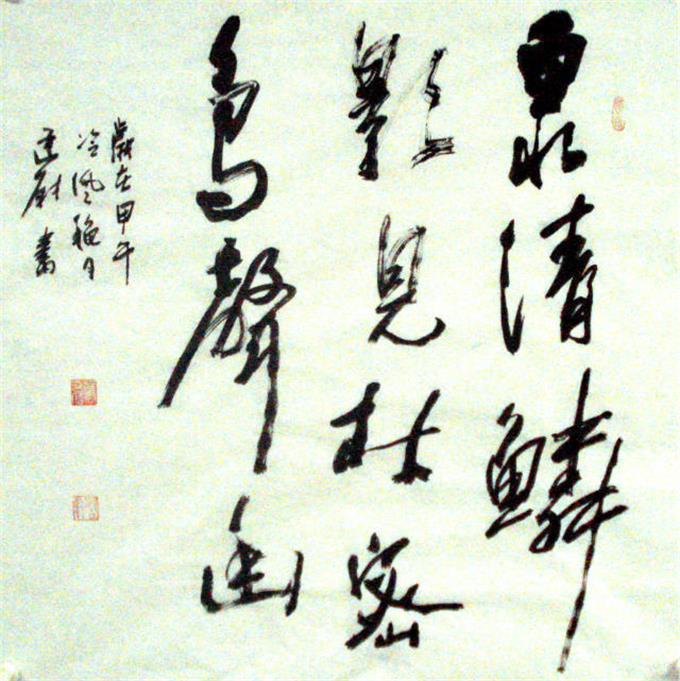 泉清鱗
影見林密
鳥聲幽
歲在甲午
冷風月
書